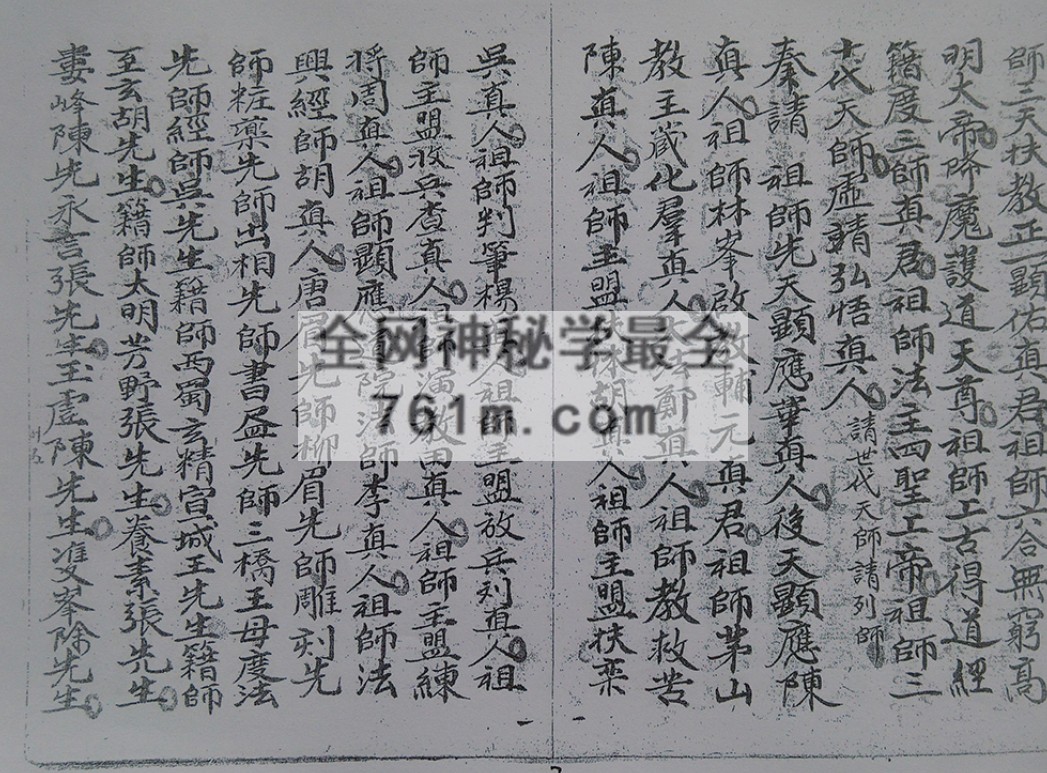 師三天扶教正一顯佑真君祖師六合無窮高
明大帝降魔護道天尊祖師上古得道經
籍度三師真君祖師法主四聖上帝祖師三
十代天師虛靖弘悟真人
請世代天師請列師
秦請祖師先天顯應華真人後天顯應陳
真人祖師林峯啟教輔元真君祖師茅山
教主藏化羣真人鄭真人祖師教救苦
陳真人祖師主盟林胡真人祖師主盟扶
吳真人祖師判筆楊真人祖師主盟放兵列真人祖
師主盟收兵查真人祖師演教甯真人祖師主盟練
將周真人祖師顯應院法師李真人祖師法
興經師胡真人唐眉先師柳眉先師雕刻先
師粧藥先師出相先師書盆先師三橋王母度法
先師經師吳先生籍師西蜀玄精宣城王先生籍師
至玄胡先生籍師太明芳野張先生養素張先生
婁峰陳先永言張先生玉虛陳先生雙峯除先生
全网神秘学最全
761m.com